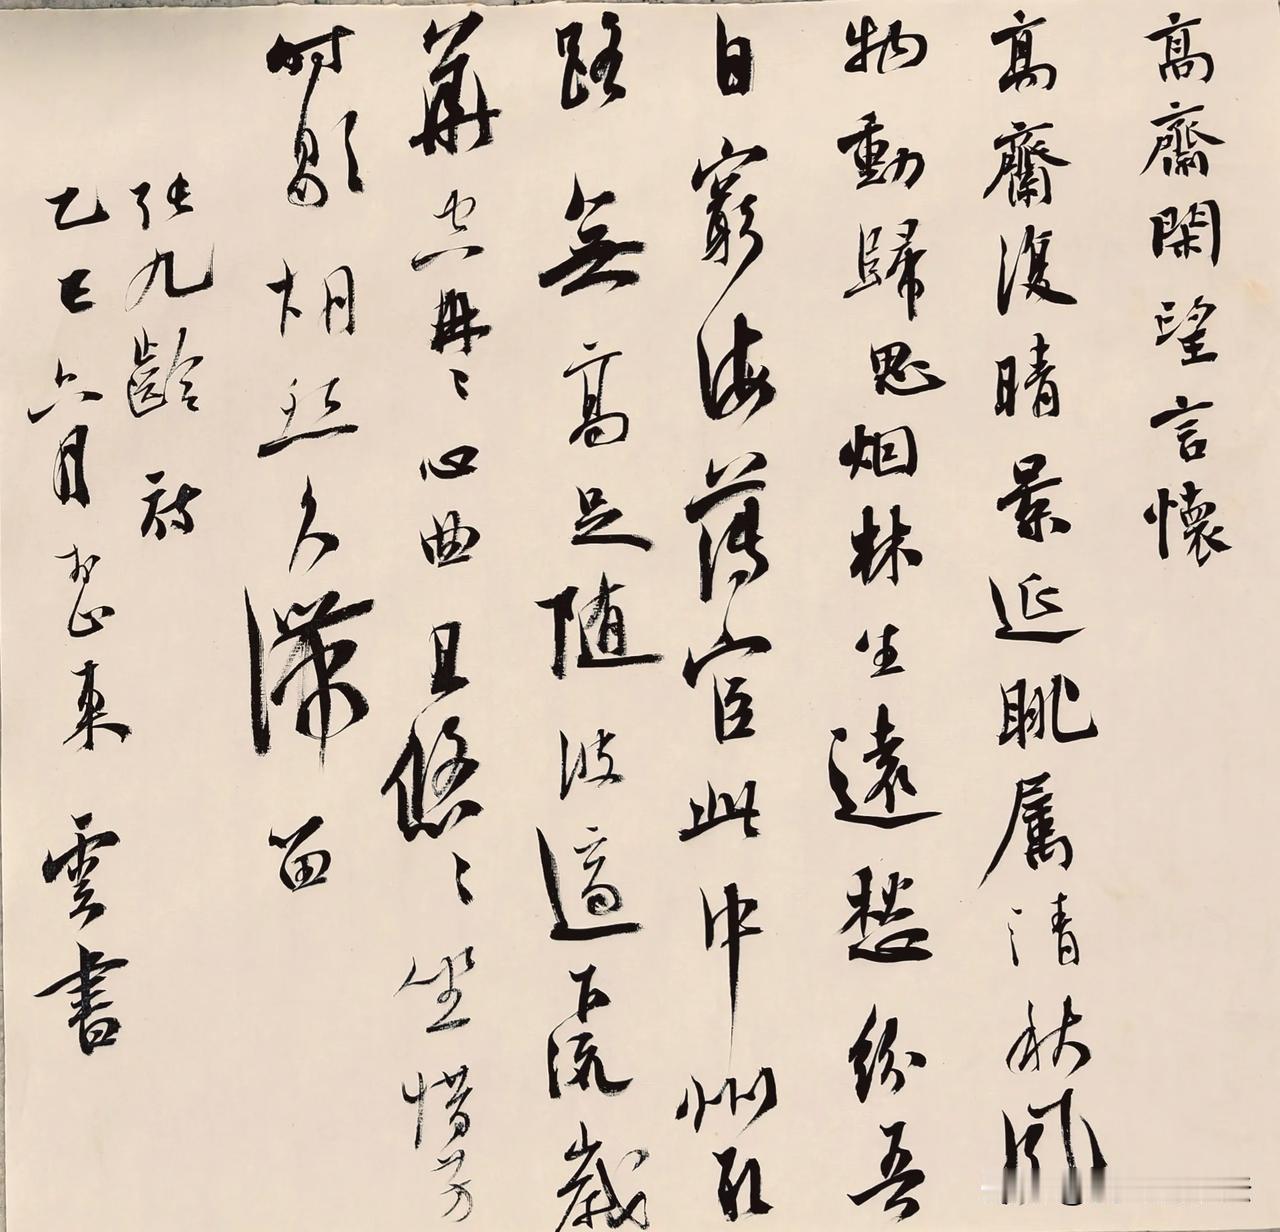 高齋閑望言懷
高齋復晴景延眺属清秋風
物動歸思烟林生遠愁紛吾
自窮海薄宦此中州取
路無高足随波適下流歲
華空冉〻心曲且悠〻坐惜芳
時歇胡然久滯留
張九齡詩
乙巳六月於山東雲書